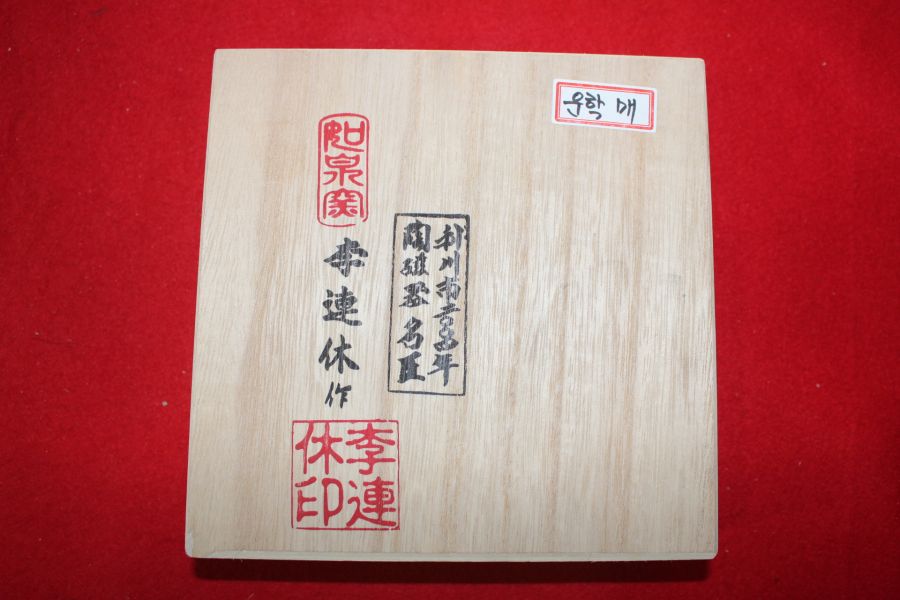 운학 매
利川市 年
陶磁器 名匠
如泉窯
李連休 作
李連
休印